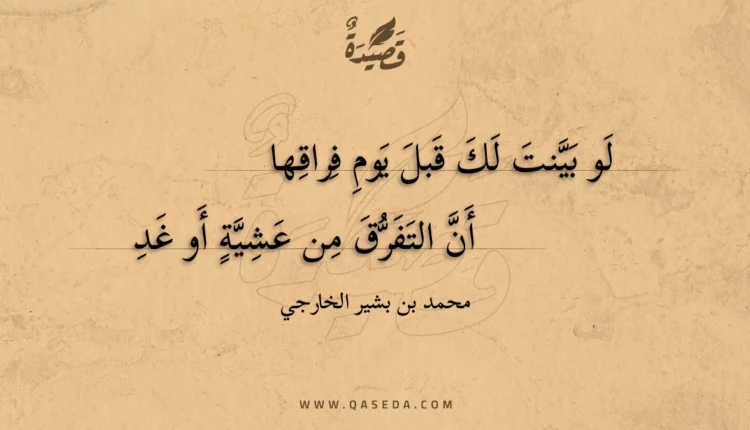 قَصِيدَةٌ
لَو بَيَّنتَ لَكَ قَبلَ يَومِ فِراقِها
أَنَّ التَفَرُّقَ مِن عَشِيَّةٍ أَو غَدِ
محمد بن بشير الخارجي
WWW.QASEDA.COM